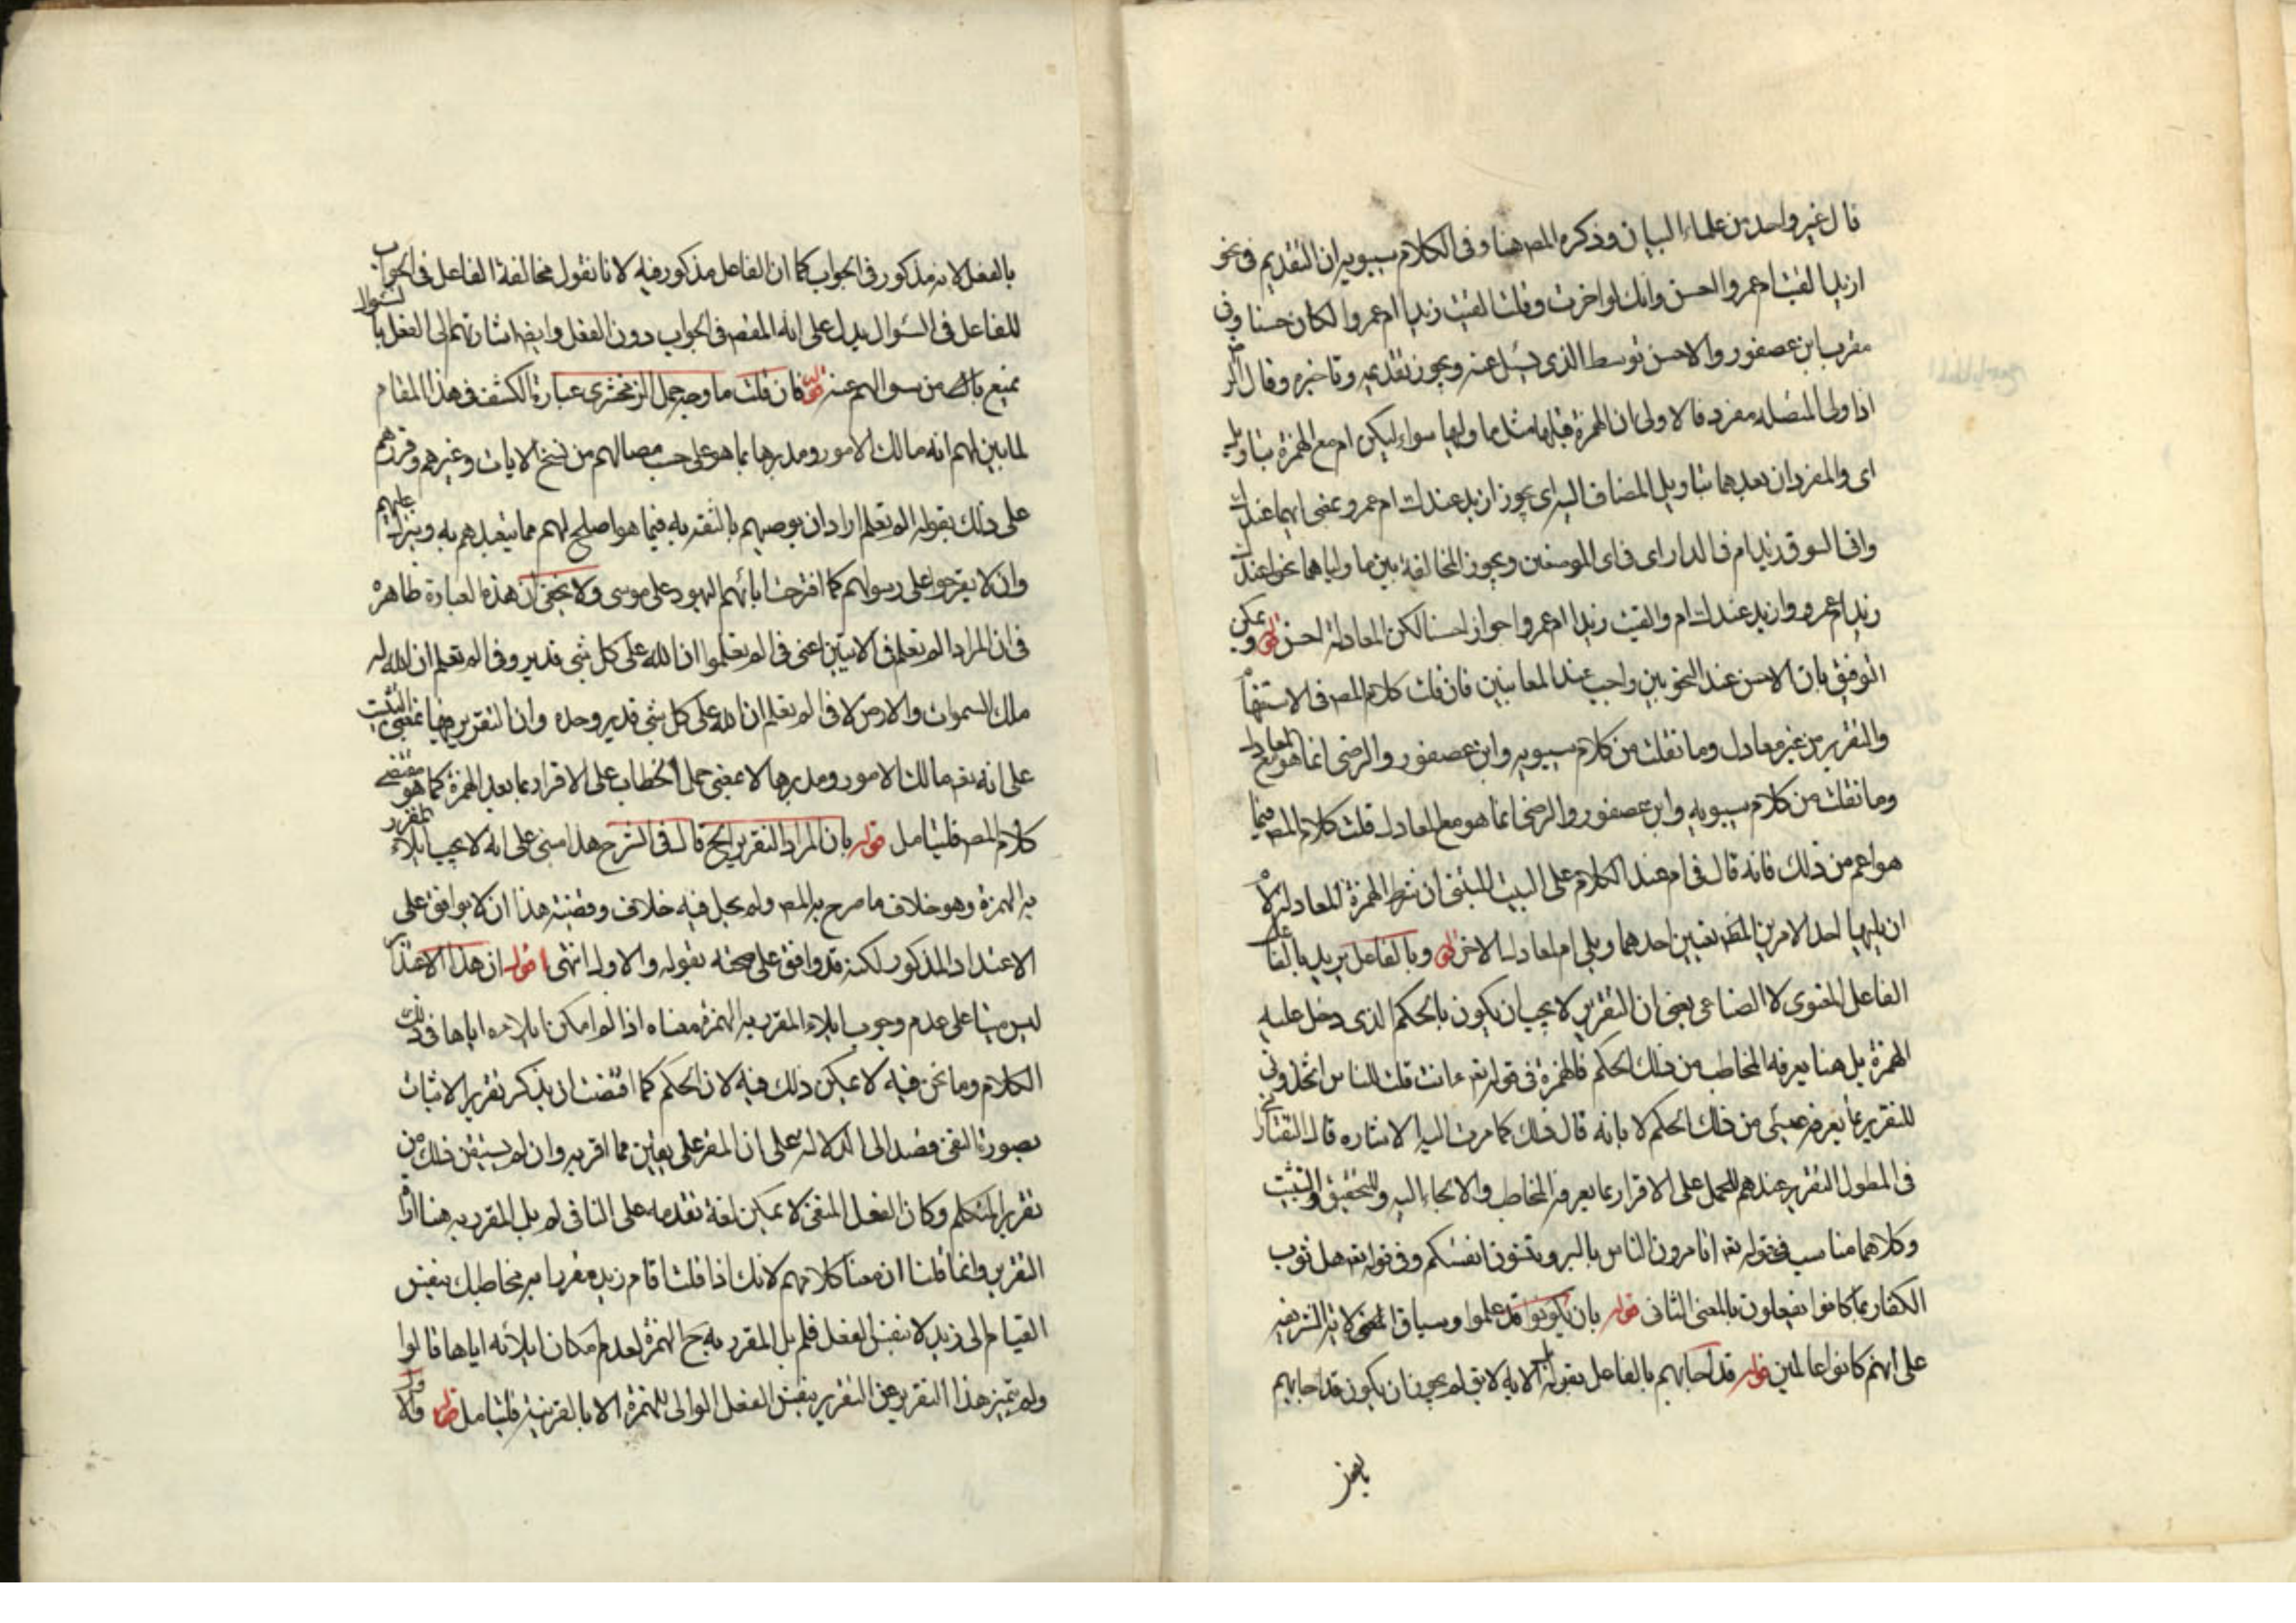 قال غير واحد من علماء البيان وذكره المصـ هنا وفى الكلام سيبويه ان التقديم فى نحو
ازيدا لقيت ام عمروا احسن وانك لو اخرت وقلت القيت زيدا ام عمروا لكان حسنا وفى
مقرب ابن عصفور والاحسن توسط الذى يسئل عنه ويجوز تقديمه وتاخيره وقال الرضى
اذا ولى المتصله مفرد فالاولى ان الهمزة قبلها مثل ما وليها سواء ليكون ام مع الهمزة بتاويل
اى والمفردان بعدهما بتاويل المضاف اليه اى يجوز ازيد عندك ام عمرو بمعنى ايهما عندك
وافى السوق زيد ام فى الدار اى فى اى الموضعين ويجوز المخالفة بين ما ولياهما نحو اعندك
زيد ام عمرو وازيد عندك ام والقيت زيدا ام عمروا جوازا حسنا لكن المعادلة احسن ويمكن
التوفيق بان الاحسن عند النحويين واجب عند المعانيين فان قلت كلام المصـ فى الاستفهام
والتقرير من غير معادل وما نقلت من كلام سيبويه وابن عصفور والرضى انما هو مع المعادل
وما نقلت من كلام سيبويه وابن عصفور والرضى انما هو مع المعادل قلت كلام المصـ فيما
هو اعم من ذلك فانه قال فى ام عند الكلام على البيت المبنى ان شرط الهمزة المعادلة لام
ان يليها احد الامرين المطـ تعيين احدهما ويلى ام المعادل الاخر قوله وبالفاعل يريد بالفاعل
الفاعل المعنوى لا الصناعى يعنى ان التقرير لا يجب ان يكون بالحكم الذى دخل عليه
الهمزة بل هنا يعرفه المخاطب من ذلك الحكم فالهمزة فى قوله تعـ ءانت قلت للناس اتخذونى
للتقرير بما يعرفه عيسى من ذلك الحكم لا بانه قال ذلك كما مرت اليه الاشاره قال التفتازانى
فى المطول التقرير عندهم للحمل على الاقرار بما يعرفه المخاطب والالجاء اليه وللتحقيق والتثبيت
وكلاهما مناسب فى قوله تعـ اتامرون الناس بالبر وتنسون انفسكم وفى قوله تعـ هل ثوب
الكفار بما كانوا يفعلون بالمعنى الثانى قوله بان يكونوا قد علموا وسياق الاية الشريفه
على انهم كانوا عالمين قوله قد اجابهم بالفاعل بقوله بل الايه لا يق لم يجوز ان يكون قد اجابهم
بالفعل
بالفعل لانه مذكور فى الجواب كما ان الفاعل مذكور فيه لانا نقول مخالفة الفاعل فى الجواب
للفاعل فى السؤال يدل على انه المقصـ فى الجواب دون الفعل وايضـ اشارتهم الى الفعل بالسؤال
يمنع من سوالهم عنه قوله فان قلت ما وجه حمل الزمخشرى عبارة الكشف فى هذا المقام
لما بين لهم انه مالك الامور ومدبرها بما هو على حسب مصالهم من نسخ الايات وغيرهم وقررهم
على ذلك بقوله الم تعلم اراد ان يوصيهم بالثقة به فيما هو اصلح لهم مما يتعبدهم به وينزل عليهم
وان لا يقترحوا على رسولهم كما اقترحت اباء اليهود على موسى ولا يخفى ان هذه العبارة ظاهره
فى ان المراد الم تعلم فى الايتين اعنى فى الم تعلموا ان الله على كل شى قدير وفى الم تعلم ان الله له
ملك السموات والارض لا فى الم تعلم ان الله على كل شى قدير وحده وان التقرير فيها بمعنى التثبيت
على انه تعـ مالك الامور ومدبرها لا بمعنى حمل الخطاب على الاقرار بما بعد الهمزة كما هو مقتضى
كلام المصـ فليتامل قوله بان المراد التقرير الخ قال فى الشرح هذا مبنى على انه لا يجب ايلاء المقرر
به الهمزة وهو خلاف ما صرح به المصـ ولم يحك فيه خلاف وقضية هذا ان لا يوافق على
الاعتداد المذكور لكنه قد وافق على صحته بقوله والاولى انتهى اقول ان هذا الاعتذار
ليس مبنيا على عدم وجوب ايلاء المقرر به الهمزة معناه اذا لو امكن ايلاءه اياها فى ذلك
الكلام وما نحن فيه لا يمكن ذلك فيه لان الحكم كما اقتضت ان يذكر تقرير الاثبات
بصورة النفى قصد الى الدلالة على ان المقر على يقين مما اقر به وان لم يستيقن ذلك من
تقرير المتكلم وكان الفعل المنفى لا يمكن لغة تقدمه على النافى لم يل المقرر به هنا اداة
التقرير وانما قلنا ان معنا كلامهم لانك اذا قلت اقام زيد مقررا به مخاطبك بنفس
القيام الى زيد لا بنفس الفعل فلم يل المقرر به ح الهمزة لعدم امكان ايلائه اياها قالوا
ولم يتميز هذا التقرير عن التقرير بنفس الفعل الموالى للهمزة الا بالقرينة فليتامل قوله